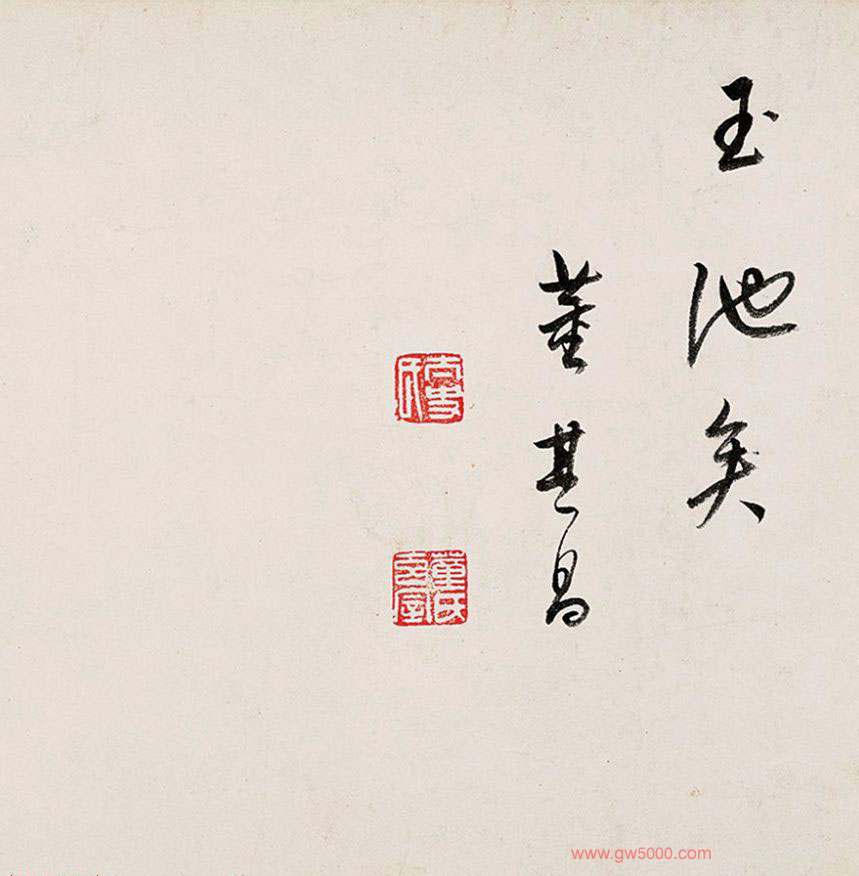 玉池矣
董其昌
董氏玄宰
www.gw5000.com